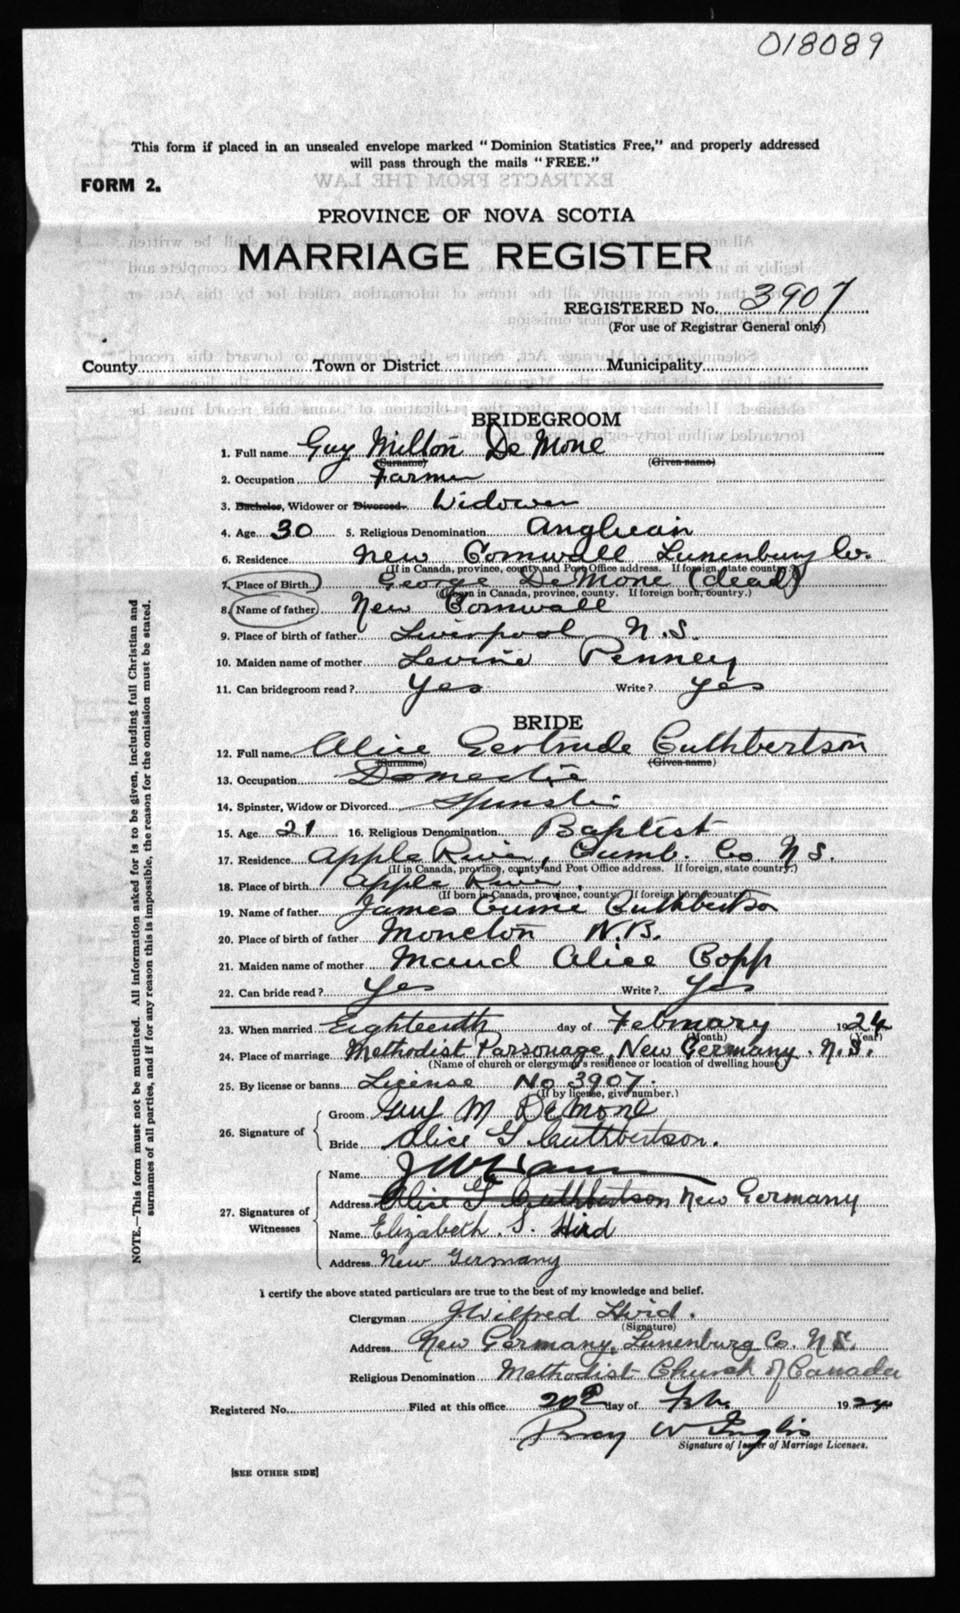 018089
This form if placed in an unsealed envelope marked "Dominion Statistics Free," and properly addressed
will pass through the mails "FREE."
FORM 2.
PROVINCE OF NOVA SCOTIA
MARRIAGE REGISTER
REGISTERED No. 3907
(For use of Registrar General only)
County Town or District Municipality
BRIDEGROOM
1. Full name Guy Milton DeMone
(Surname) (Given name)
2. Occupation Farmer
3. Bachelor, Widower or Divorced. Widower
4. Age 30 5. Religious Denomination Anglican
6. Residence New Cornwall Lunenburg Co.
(If in Canada, province, county and Post Office address. If foreign, state country.)
7. Place of Birth George DeMone (dead)
(If born in Canada, province, county. If foreign born, country.)
8. Name of father New Cornwall
9. Place of birth of father Liverpool N.S.
10. Maiden name of mother Levine Penney
11. Can bridegroom read? Yes Write? Yes
BRIDE
12. Full name Alice Gertrude Cuthbertson
(Surname) (Given name)
13. Occupation Domestic
14. Spinster, Widow or Divorced Spinster
15. Age 21 16. Religious Denomination Baptist
17. Residence Apple River, Cumb. Co. N S.
(If in Canada, province, county and Post Office address. If foreign, state country.)
18. Place of birth Apple River,
(If born in Canada, province, county. If foreign born country.)
19. Name of father James Cuthbertson
20. Place of birth of father Moncton N.B.
21. Maiden name of mother Maud Alice Copp
22. Can bride read? Yes Write? Yes
23. When married Eighteenth day of February 1924
(Month) (Year)
24. Place of marriage Methodist Parsonage, New Germany. N.S.
(Name of church or clergyman's residence or location of dwelling house.)
25. By license or banns License No 3907.
(If by license, give number.)
26. Signature of
Groom Guy M DeMone
Bride Alice G Cuthbertson.
27. Signatures of Witnesses
Name
Address Alice G Cuthbertson New Germany
Name Elizabeth S. Hird
Address New Germany
I certify the above stated particulars are true to the best of my knowledge and belief.
Clergyman J Wilfred Hird.
(Signature)
Address New Germany, Lunenburg Co. N.S.
Religious Denomination Methodist Church of Canada
Registered No. Filed at this office 20th day of Feb. 1924
W Inglis
Signature of Issuer of Marriage Licenses.
[SEE OTHER SIDE]
NOTE.—This form must not be mutilated. All information asked for is to be given, including full Christian and
surnames of all parties, and if for any reason this is impossible, the reason for the omission must be stated.